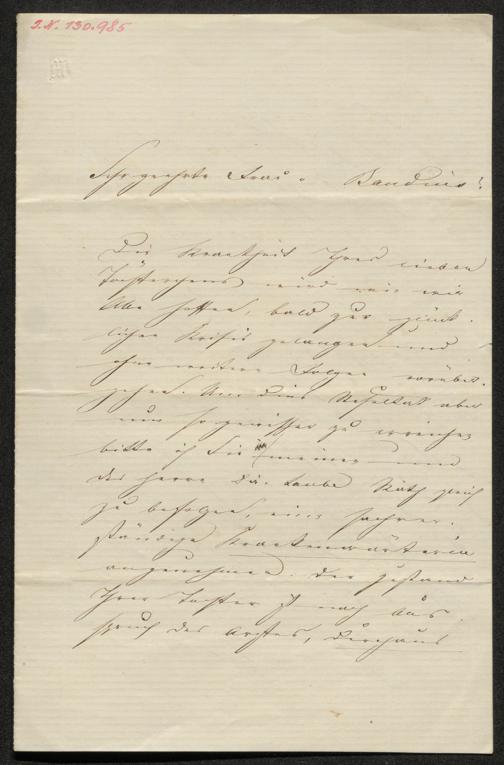 I.N. 130.985
Sehr geehrte Frau v. Baudius!
Die Krankheit Ihres lieben
Töchterchens wird wie wir
Alle hoffen, bald zur glück-
lichen Krisis gelangen und
ohne weitere Folgen vorüber-
gehen. Um dies Resultat aber
um so gewisser zu erreichen
bitte ich Sie meinen und
des Herrn Dr. Raube Rath gleich
zu befolgen, eine sachver-
ständige Krankenwärterin
anzunehmen. Der Zustand
Ihrer Tochter ist nach Aus-
spruch des Arztes, durchaus